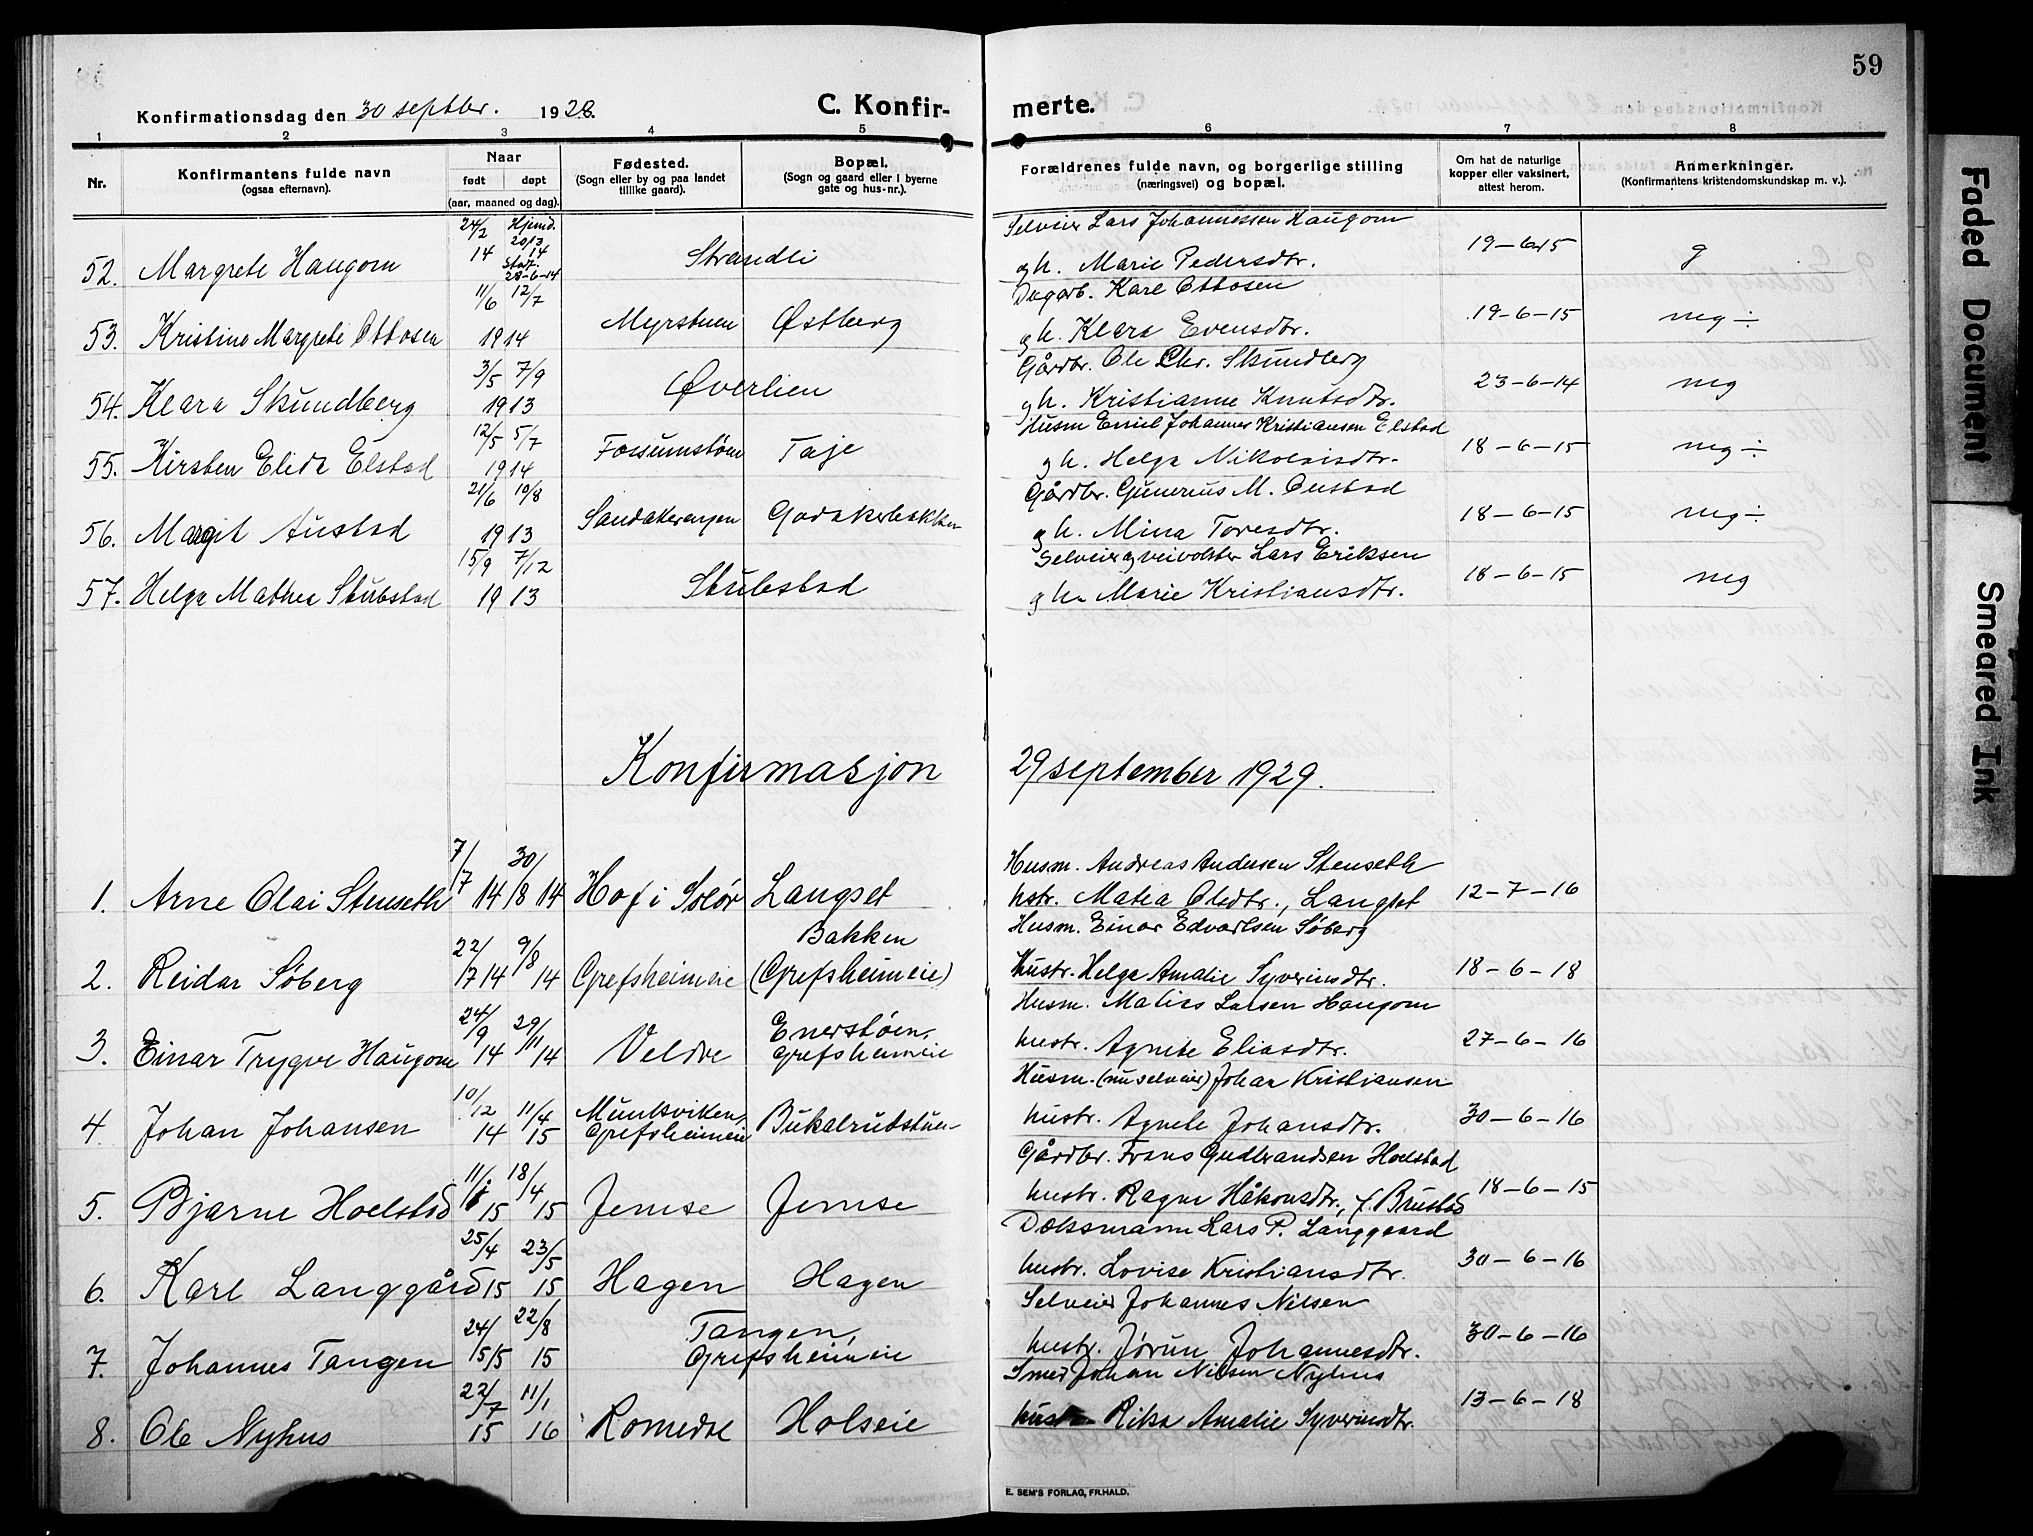 59
Konfirmationsdag den 30 septbr. 1928. C. Konfirmerte.
1 2 3 4 5 6 7 8
Nr. Konfirmantens fulde navn (ogsaa efternavn). Naar født døpt (aar, maaned og dag). Fødested. (Sogn eller by og paa landet tillike gaard). Bopæl. (Sogn og gaard eller i byerne gate og hus-nr.). Forældrenes fulde navn, og borgerlige stilling (næringsvei) og bopæl. Om hat de naturlige kopper eller vaksinert, attest herom. Anmerkninger. (Konfirmantens kristendomskundskap m. v.).
24/2 Hjemd. Selveier Lars Johannessen Haugom
52. Margrete Haugom 14 20/3 14 Stad. 28-6-14 Strandli og h. Marie Pedersdtr. 19-6-15 g
11/6 12/7 Dagarb. Karl Ottosen
53. Kristine Margrete Ottosen 1914 Myrstuen Østberg og h. Klara Evensdtr. 19-6-15 meg ÷
3/5 7/9 Gårdbr. Ole Chr. Skundberg
54. Klara Skundberg 1913 Øverlien og h. Kristianne Knutsdtr. 23-6-14 meg
12/5 5/7 Husm Emil Johannes Kristiansen Elstad
55. Kirsten Elida Elstad 1914 Fossumstøen Taje og h. Helga Nikolaisdtr. 18-6-15 meg ÷
21/6 10/8 Gårdbr. Gunerius M. Austad
56. Margit Austad 1913 Sandakerengen Godakerbakken og h. Mina Toresdtr. 18-6-15 meg ÷
15/9 7/12 Selveier og veivokter Lars Eriksen
57. Helga Mathea Stubstad 1913 Stubstad og h. Marie Kristiansdtr. 18-6-15 meg
Konfirmasjon 29 september 1929.
7/7 30/8 Husm. Andreas Andersen Stenseth
1. Arne Olai Stenseth 14 14 Hof i Solør Langset hstr. Matea Olsdtr., Langset 12-7-16
22/7 9/8 Bakken Husm. Einar Edvartsen Søberg
2. Reidar Søberg 14 14 Grefsheimeie (Grefsheimeie) hustr. Helga Amalie Syverinsdtr. 18-6-18
24/9 29/11 Enerstøen, Husm. Matias Larsen Haugom
3. Einar Trygve Haugom 14 14 Veldre Grefsheimeie hustr. Agnete Eliasdtr. 27-6-16
10/12 11/4 Munksviken, Husm. (nu selveier) Johan Kristiansen
4. Johan Johansen 14 15 Grefsheimeie Bukalrudstuen hustr. Agnete Johansdtr. 30-6-16
11/1 18/4 Gårdbr. Frans Gudbrandsen Hoelstad
5. Bjarne Hoelstad 15 15 Jemse Jemse hustr. Ragna Håkonsdtr., f. Brustad 18-6-15
25/4 23/5 Dølsmann Lars P. Langgaard
6. Karl Langgård 15 15 Hagen Hagen hustr. Lovise Kristiansdtr. 30-6-16
24/5 22/8 Tangen, Selveier Johannes Nilsen
7. Johannes Tangen 15 15 Grefsheimeie hustr. Jørun Johannesdtr. 30-6-16
22/7 11/1 Smed Johan Nilsen Nyhus
8. Ole Nyhus 15 16 Romedal Holseie hustr. Rika Amalie Syverinsdtr. 13-6-18
E. SEM'S FORLAG, FR.HALD.
Faded Document
Smeared Ink